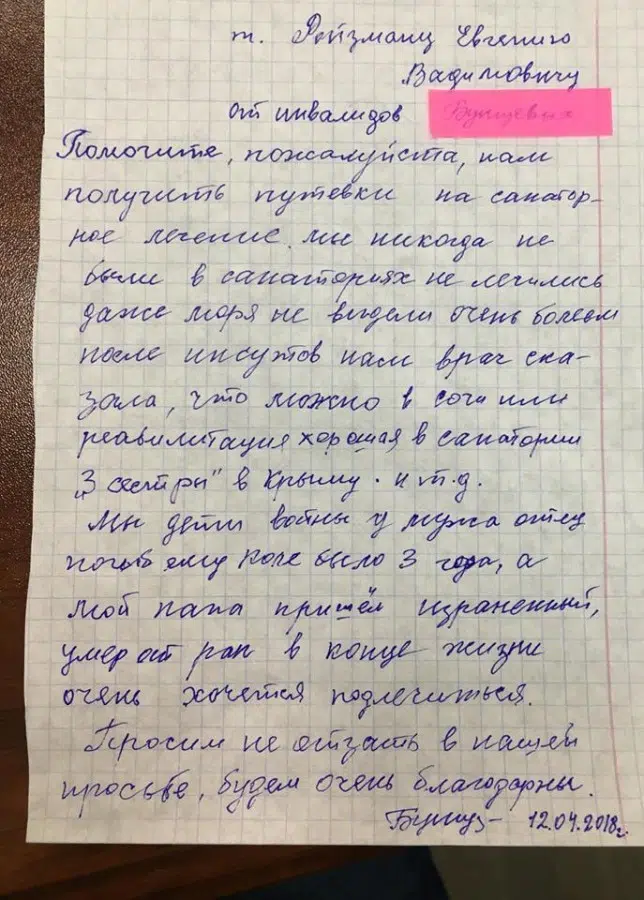 т. Ройзману Евгению
Вадимовичу
от инвалидов
Помогите, пожалуйста, нам
получить путевки на санатор-
ное лечение. мы никогда не
были в санаториях не лечились
даже моря не видели очень болеем
после инсультов нам врач ска-
зала, что можно в сочи или
реабилитация хорошая в санатории
„3 сестры" в Крыму. и т.д.
Мы дети войны у мужа отец
погиб ему было 3 года, а
мой папа пришёл израненный,
умер от ран в конце жизни
очень хочется подлечиться.
Просим не отказать в нашей
просьбе, будем очень благодарны.
12.04.2018г.